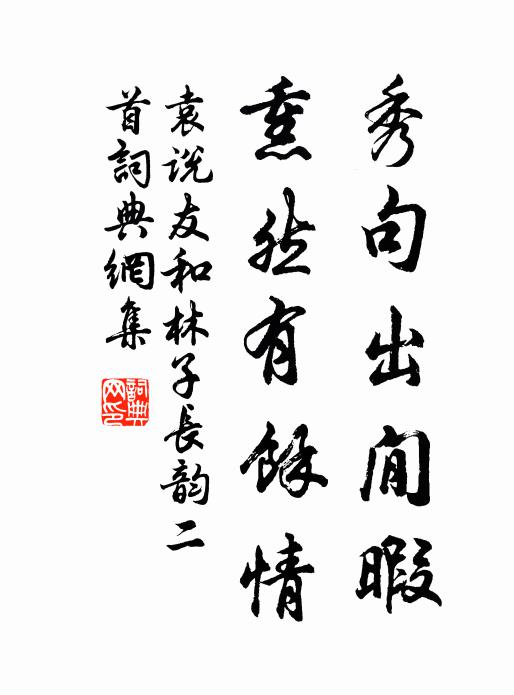 秀句出閒暇
熏然有餘情
袁説友和林子長韵二
首詞典網集
詞典
网印